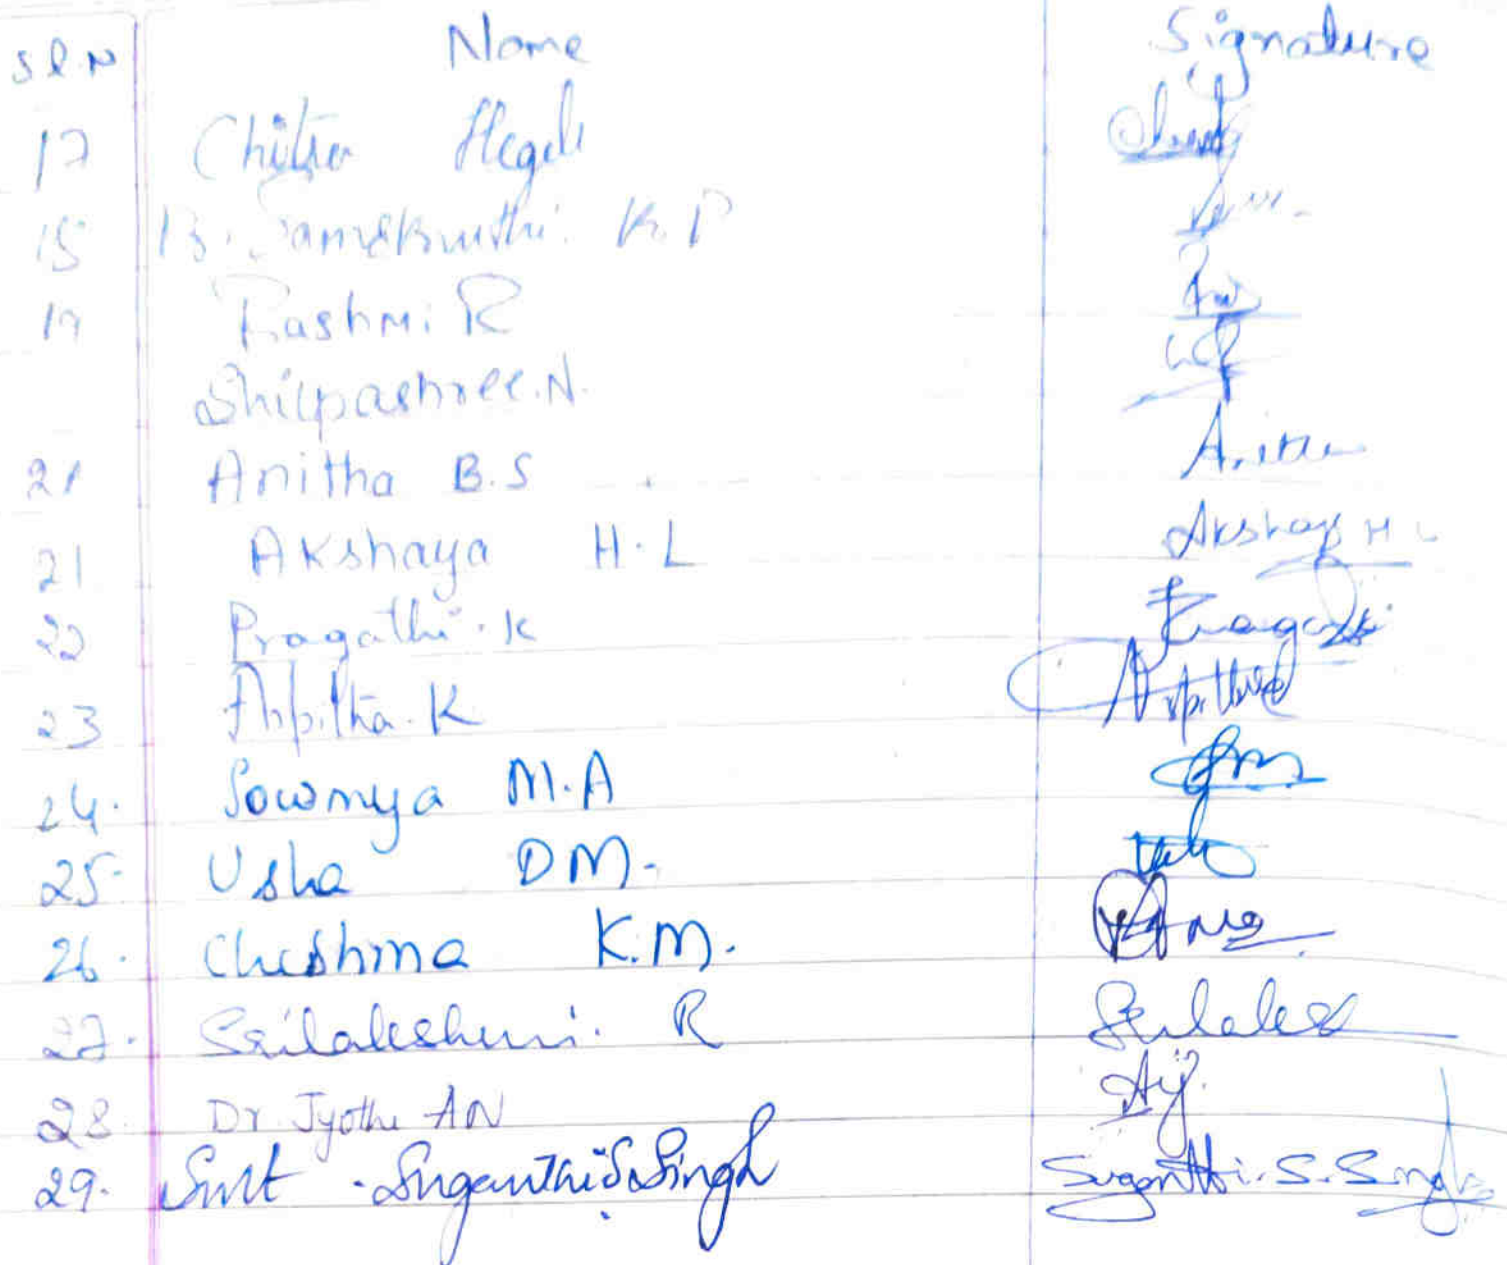 Sl.N Name Signature
17 Chitra Hegde
15 B. Samskruthi. K.P
19 Rashmi R
Shilpashree.N.
21 Anitha B.S Anitha
21 Akshaya H.L Akshaya H L
22 Pragathi.K Pragathi
23 Arpitha.K Arpitha
24. Sowmya M.A
25. Usha DM.
26. Chushma K.M.
27. Srilakshmi. R
28. Dr. Jyothi AN
29. Smt. Suganthi S Singh Suganthi.S.Singh